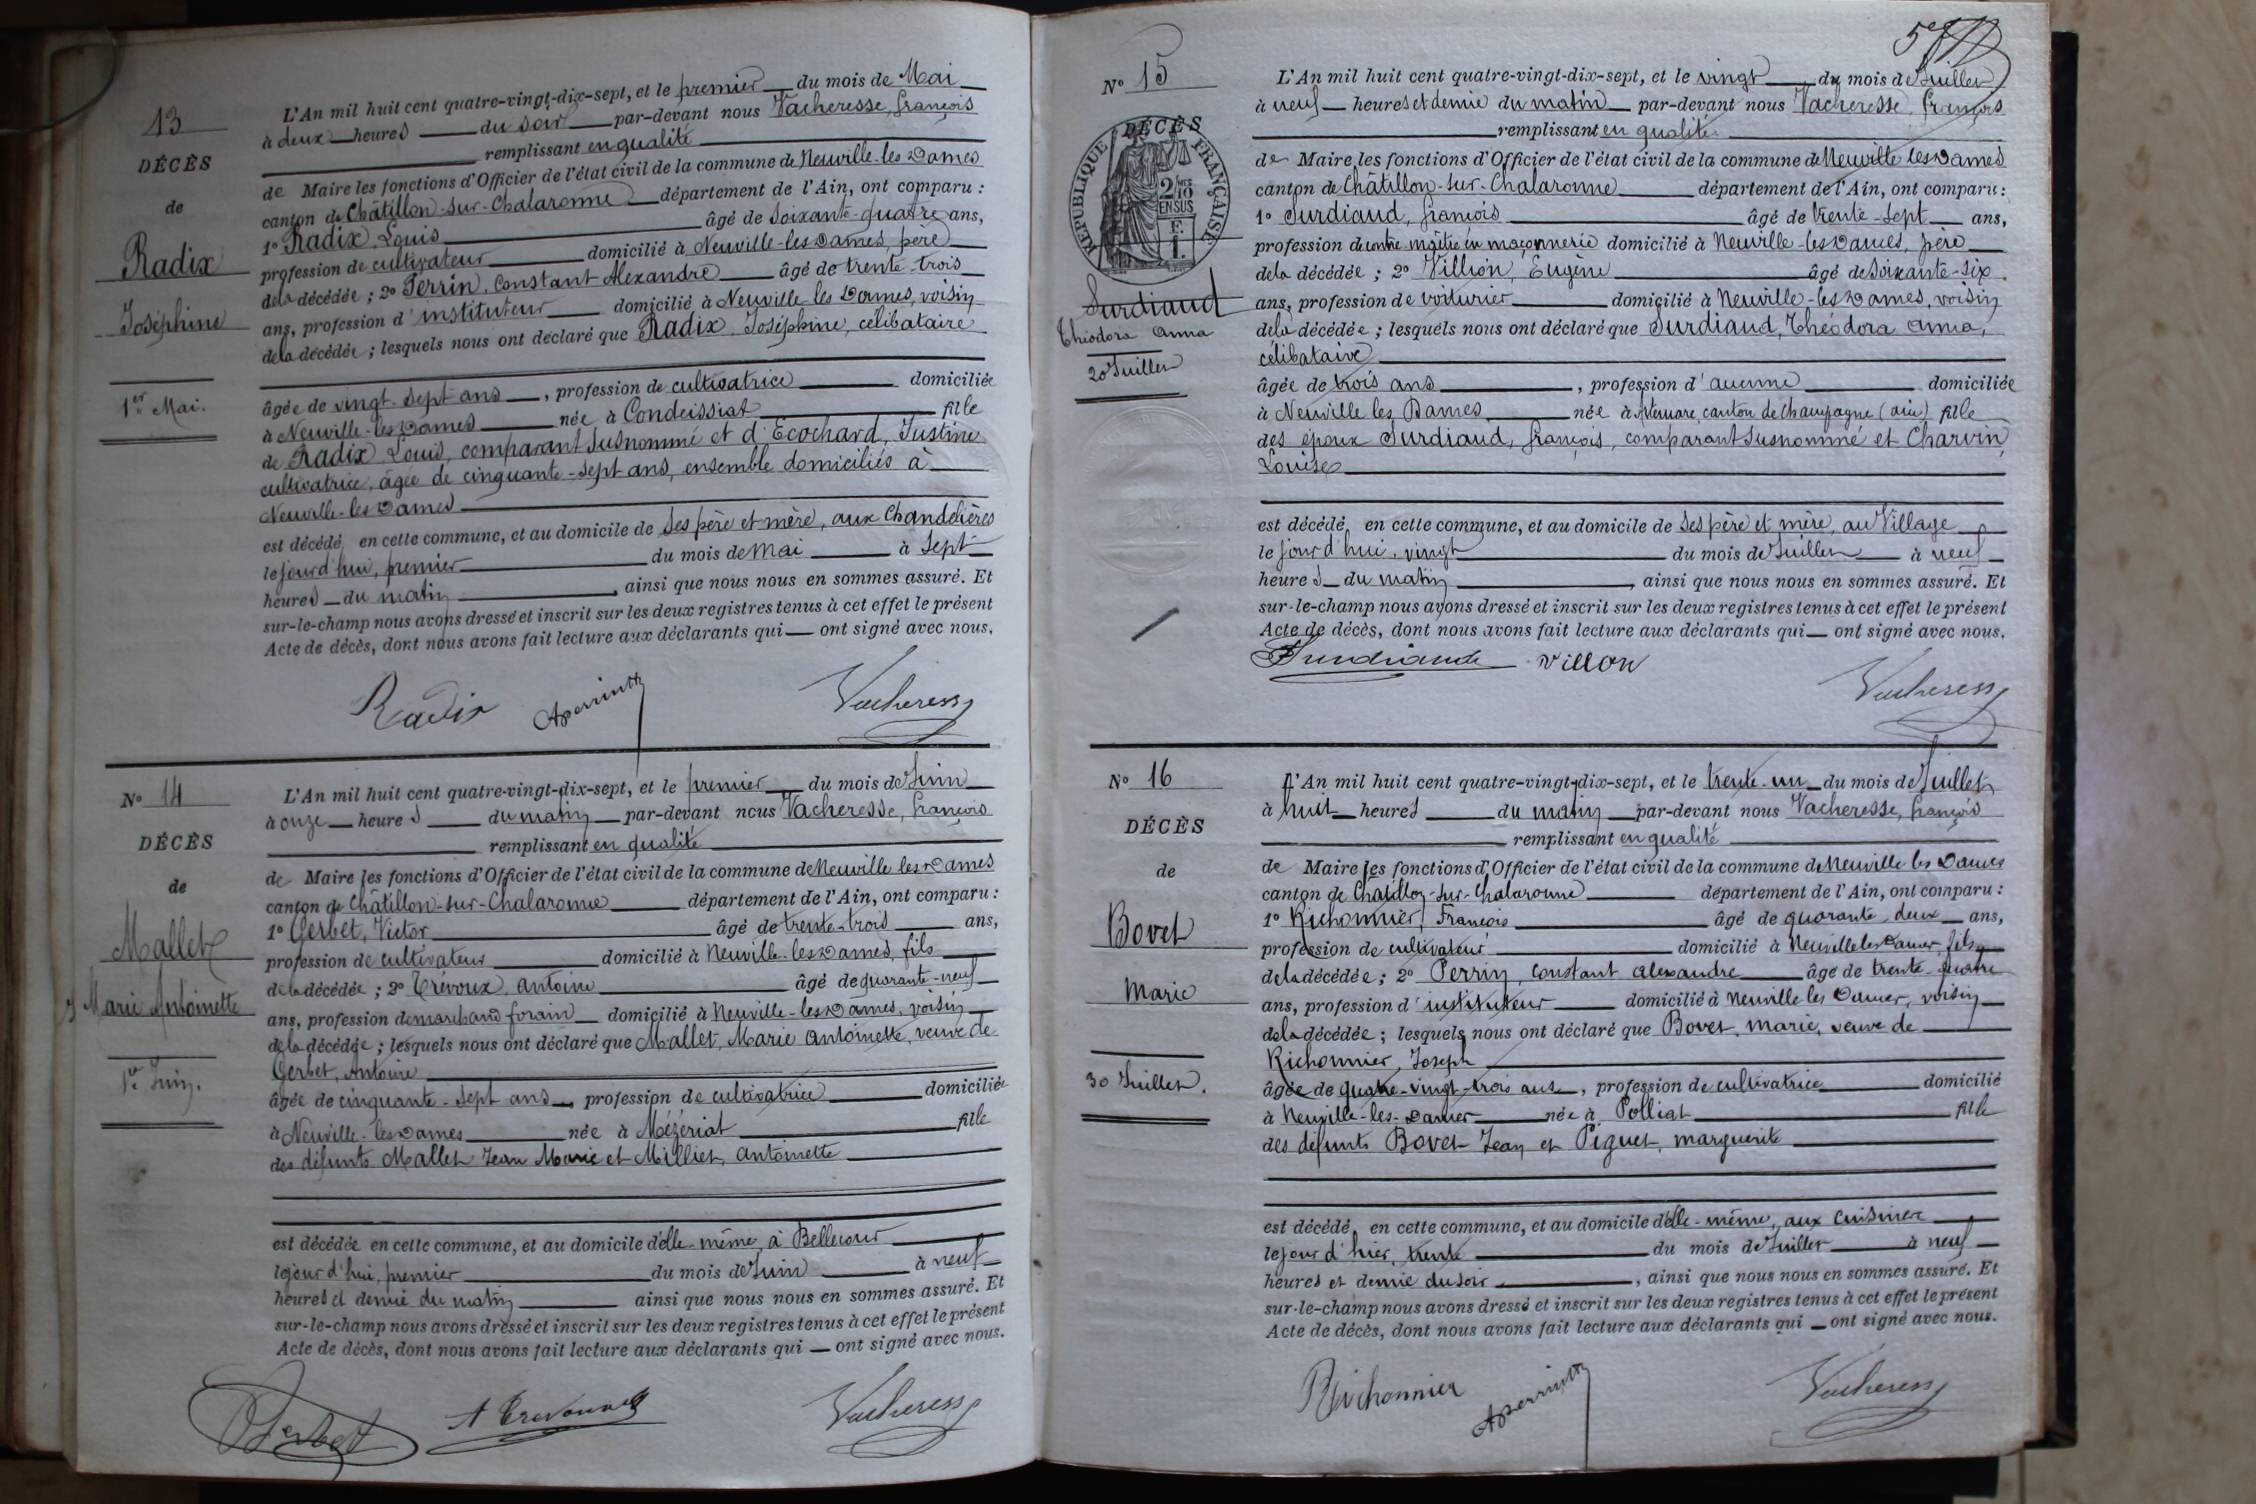 13
DÉCÈS
de
Radix
Joséphine
1er Mai.
L'An mil huit cent quatre-vingt-dix-sept, et le premier du mois de Mai
à deux heures du soir par-devant nous Vacheresse, françois
remplissant en qualité
de Maire les fonctions d'Officier de l'état civil de la commune de Neuville-les-Dames
canton de Châtillon-sur-Chalaronne département de l'Ain, ont comparu :
1º Radix, Louis âgé de soixante-quatre ans,
profession de cultivateur domicilié à Neuville-les-Dames, père
de la décédée ; 2º Perrin, Constant Alexandre âgé de trente-trois
ans, profession d'instituteur domicilié à Neuville les Dames, voisin
de la décédée ; lesquels nous ont déclaré que Radix, Joséphine, célibataire
âgée de vingt-sept ans, profession de cultivatrice domiciliée
à Neuville-les-Dames née à Condeissiat fille
de Radix, Louis, comparant susnommé et d'Ecochard, Justine
cultivatrice, âgée de cinquante-sept ans, ensemble domiciliés à
Neuville-les-Dames
est décédé en cette commune, et au domicile de ses père et mère, aux Chandelières
le jour d'hui, premier du mois de Mai à sept
heures du matin, ainsi que nous nous en sommes assuré. Et
sur-le-champ nous avons dressé et inscrit sur les deux registres tenus à cet effet le présent
Acte de décès, dont nous avons fait lecture aux déclarants qui ont signé avec nous.
Radix Aperrin Vacheresse
Nº 14
DÉCÈS
de
Mallet
Marie Antoinette
1er Juin.
L'An mil huit cent quatre-vingt-dix-sept, et le premier du mois de Juin
à onze heures du matin par-devant nous Vacheresse, françois
remplissant en qualité
de Maire les fonctions d'Officier de l'état civil de la commune de Neuville les Dames
canton de Châtillon-sur-Chalaronne département de l'Ain, ont comparu :
1º Gerbet, Victor âgé de trente-trois ans,
profession de cultivateur domicilié à Neuville-les-Dames, fils
de la décédée ; 2º Trévoux, Antoine âgé de quarante-neuf
ans, profession de marchand forain domicilié à Neuville-les-Dames, voisin
de la décédée ; lesquels nous ont déclaré que Mallet, Marie Antoinette, veuve de
Gerbet, Antoine
âgée de cinquante-sept ans, profession de cultivatrice domiciliée
à Neuville-les-Dames née à Mézériat fille
des défunts Mallet Jean Marie et Milliet, Antoinette
est décédée en cette commune, et au domicile d'elle-même, à Bellecour
le jour d'hui, premier du mois de Juin à neuf
heures et demie du matin ainsi que nous nous en sommes assuré. Et
sur-le-champ nous avons dressé et inscrit sur les deux registres tenus à cet effet le présent
Acte de décès, dont nous avons fait lecture aux déclarants qui ont signé avec nous.
Gerbet A Trevoux Vacheresse
Nº 15
DÉCÈS
RÉPUBLIQUE FRANÇAISE
2/10 EN SUS
Surdiaud
Théodora Anna
20 Juillet
L'An mil huit cent quatre-vingt-dix-sept, et le vingt du mois de Juillet
à neuf heures et demie du matin par-devant nous Vacheresse, françois
remplissant en qualité
de Maire les fonctions d'Officier de l'état civil de la commune de Neuville les Dames
canton de Châtillon-sur-Chalaronne département de l'Ain, ont comparu :
1º Surdiaud, françois âgé de trente-sept ans,
profession de contre-maître en maçonnerie domicilié à Neuville-les-Dames, père
de la décédée ; 2º Villion, Eugène âgé de soixante-six
ans, profession de voiturier domicilié à Neuville-les-Dames, voisin
de la décédée ; lesquels nous ont déclaré que Surdiaud, Théodora Anna,
célibataire
âgée de trois ans, profession d'aucune domiciliée
à Neuville les Dames née à canton de Champagne (ain) fille
des époux Surdiaud, françois, comparant susnommé et Charvin,
Louise
est décédé en cette commune, et au domicile de ses père et mère, au Village
le jour d'hui, vingt du mois de Juillet à neuf
heures du matin, ainsi que nous nous en sommes assuré. Et
sur-le-champ nous avons dressé et inscrit sur les deux registres tenus à cet effet le présent
Acte de décès, dont nous avons fait lecture aux déclarants qui ont signé avec nous.
Surdiaud Villon Vacheresse
Nº 16
DÉCÈS
de
Bovet
Marie
30 Juillet.
L'An mil huit cent quatre-vingt-dix-sept, et le trente-un du mois de Juillet
à huit heures du matin par-devant nous Vacheresse, françois
remplissant en qualité
de Maire les fonctions d'Officier de l'état civil de la commune de Neuville les Dames
canton de Châtillon-sur-Chalaronne département de l'Ain, ont comparu :
1º Richonnier, François âgé de quarante-deux ans,
profession de cultivateur domicilié à Neuville les Dames, fils
de la décédée ; 2º Perrin, Constant Alexandre âgé de trente-quatre
ans, profession d'instituteur domicilié à Neuville les Dames, voisin
de la décédée ; lesquels nous ont déclaré que Bovet, Marie, veuve de
Richonnier, Joseph
âgée de quatre-vingt-trois ans, profession de cultivatrice domicilié
à Neuville-les-Dames née à Polliat fille
des défunts Bovet Jean et Piguet, marguerite
est décédé en cette commune, et au domicile d'elle-même, aux Cuisiner
le jour d'hier, trente du mois de Juillet à neuf
heures et demie du soir, ainsi que nous nous en sommes assuré. Et
sur-le-champ nous avons dressé et inscrit sur les deux registres tenus à cet effet le présent
Acte de décès, dont nous avons fait lecture aux déclarants qui ont signé avec nous.
Richonnier Aperrin Vacheresse